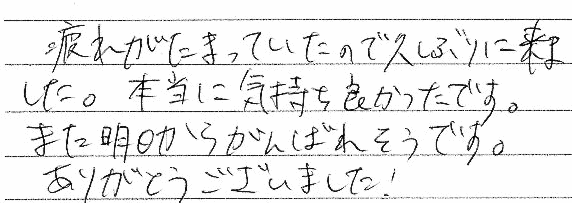 疲れがたまっていたので久しぶりに来ま
した。本当に気持ち良かったです。
また明日からがんばれそうです。
ありがとうございました!